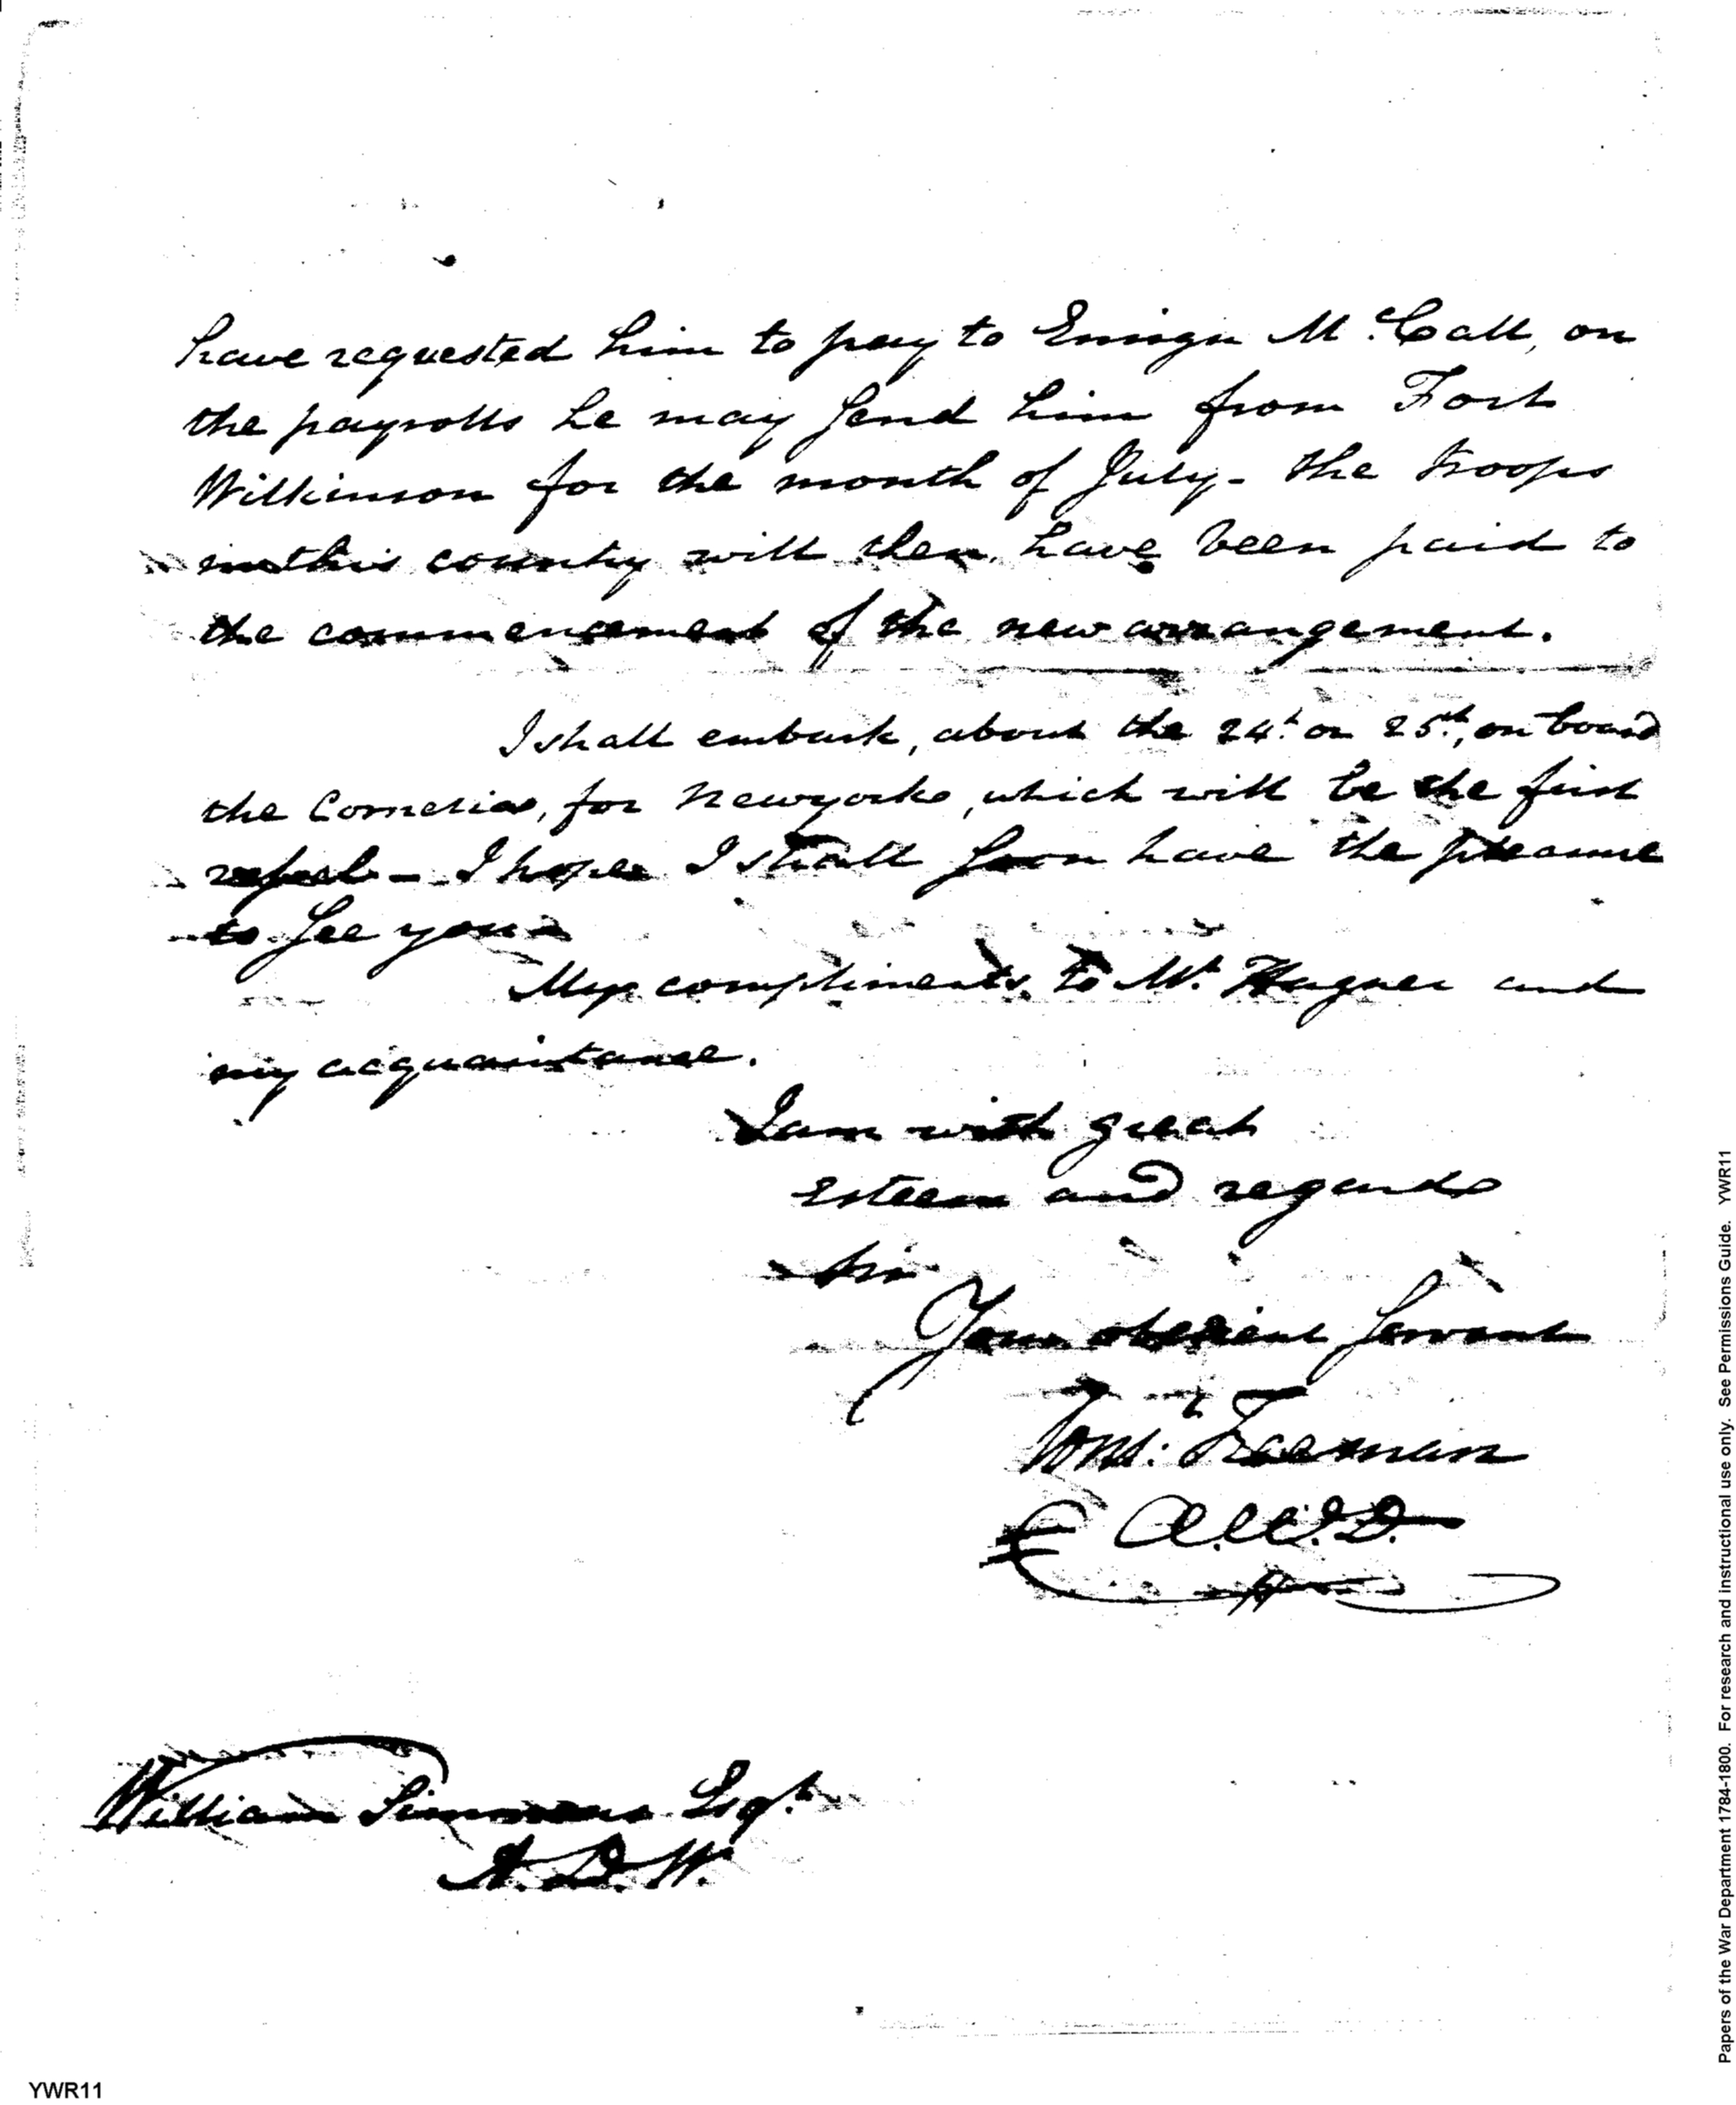 have requested him to pay to Ensign Mc.Call, on
the payrolls he may send him from Fort
Wilkinson for the month of July - the troops
in this country will then have been paid to
the commencement of the new arrangement.
I shall embark, about the 24th or 25th, on board
the Cornelia, for Newyork, which will be the first
vessel - I hope I shall soon have the pleasure
to see you -
My compliments to Mr. Hagner and
my acquaintance.
I am with great
esteem and regard
Sir
Your obedient Servant
Const. Freeman
A.W.D.
William Simmons Esqr.
A.D.W.
YWR11
Papers of the War Department 1784-1800. For research and instructional use only. See Permissions Guide. YWR11